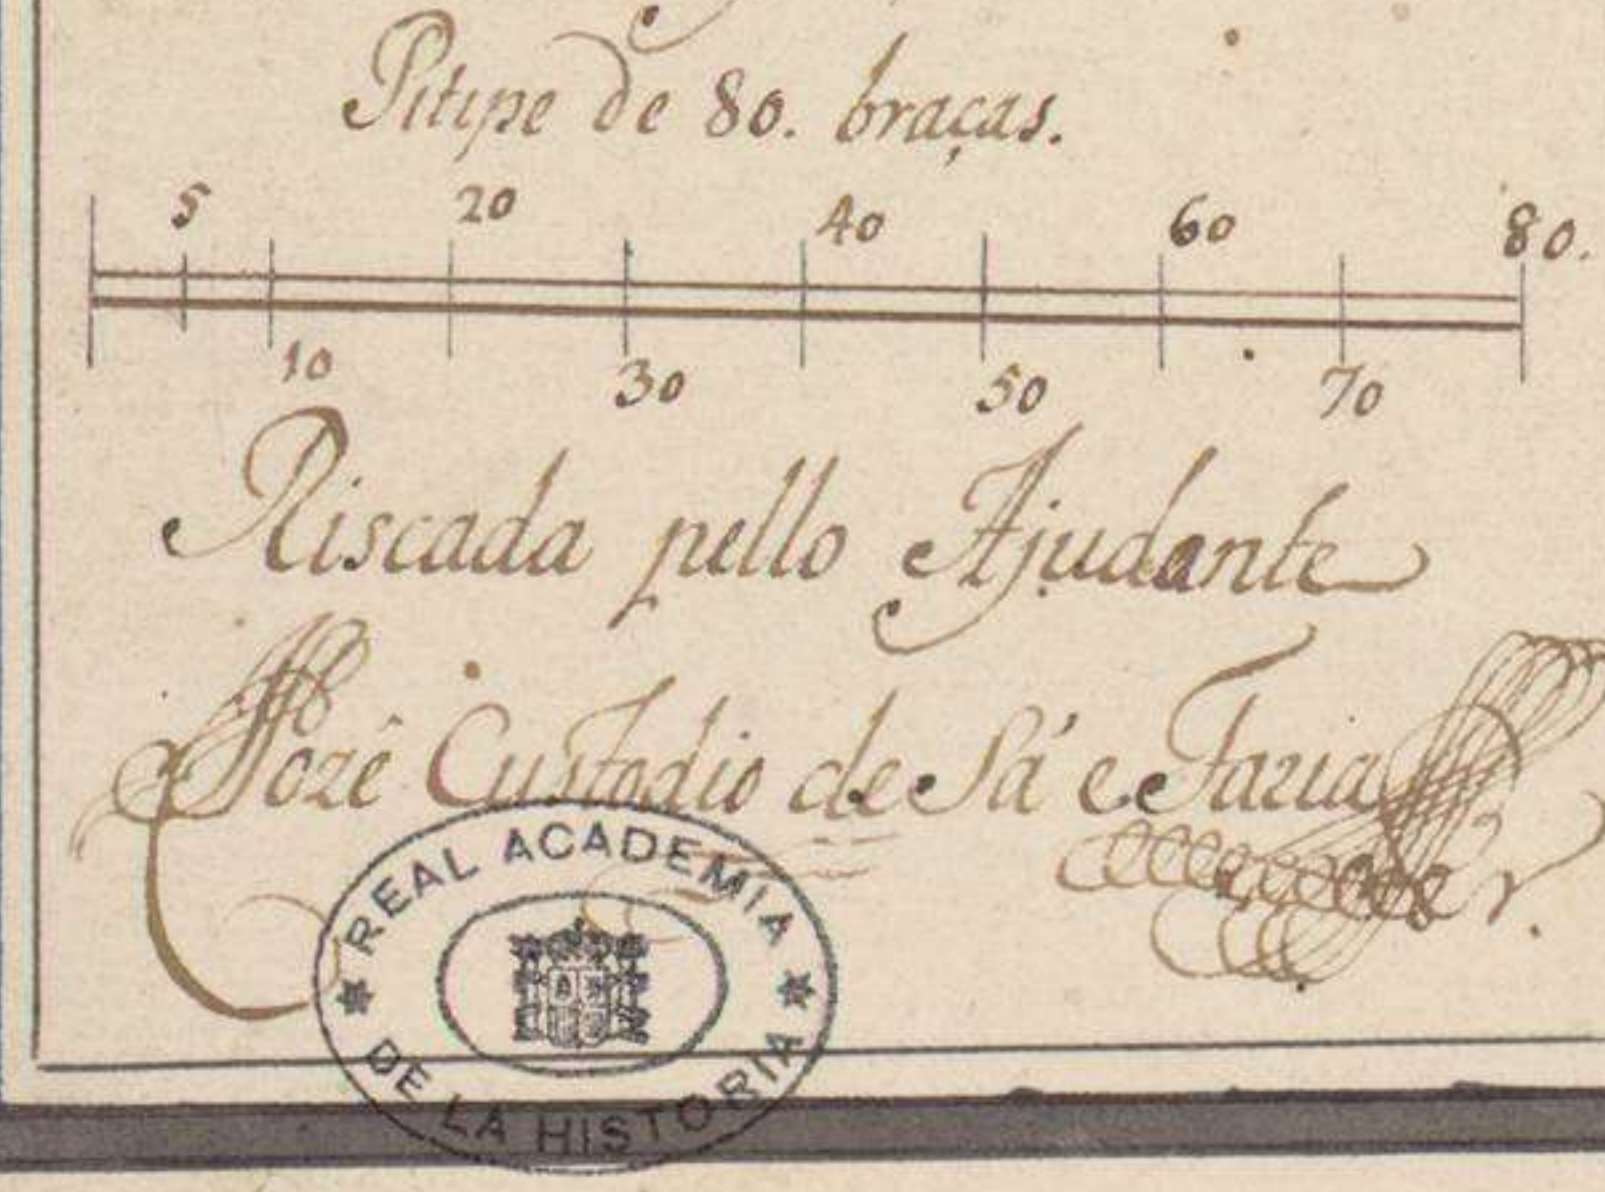 Pitipe de 80. braças.
5 20 40 60 80.
10 30 50 70
Riscada pello Ajudante
Jozê Custodio de Sá e Faria
REAL ACADEMIA
DE LA HISTORIA